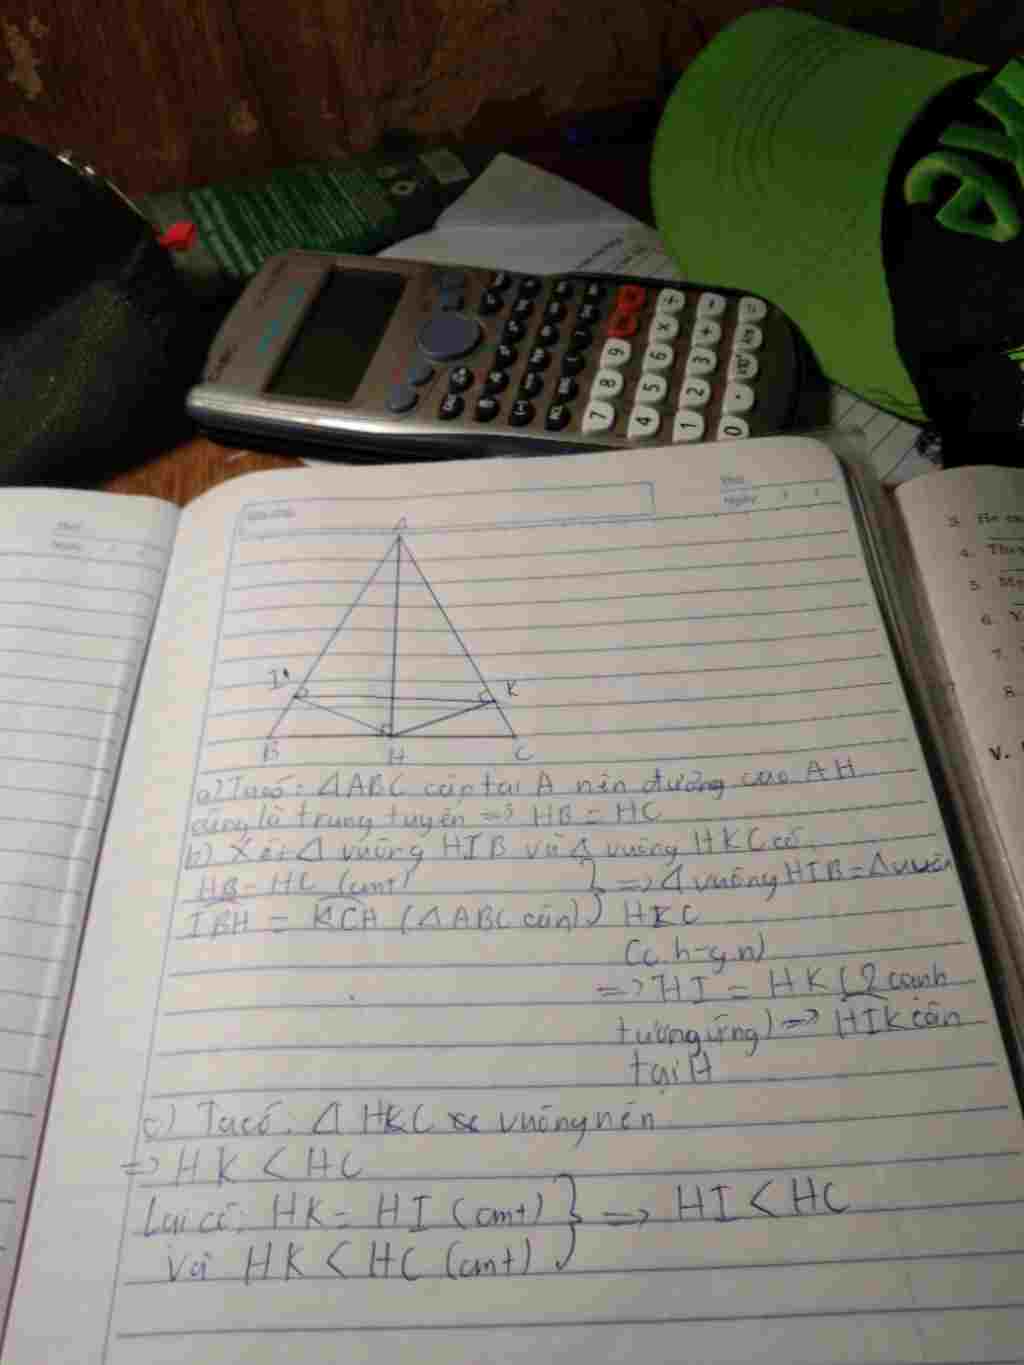 A
I
K
B
H
C
a) Ta có: ΔABC cân tại A nên đường cao AH
cũng là trung tuyến => HB = HC
b) Xét Δ vuông HIB và Δ vuông HKC có:
HB = HC (cmt)
IBH = KCH (ΔABC cân)
} => Δ vuông HIB = Δ vuông
HKC
(c.h-g.n)
=> HI = HK (2 cạnh
tương ứng) => HIK cân
tại H
c) Ta có: Δ HKC vuông nên
=> HK < HC
Lại có: HK = HI (cmt)
Và HK < HC (cmt)
} => HI < HC
7 8 9
4 5 6 × ÷
1 2 3 + -
0 . =
Thứ
Ngày
3.
4.
5.
6.
7.
8.
V.